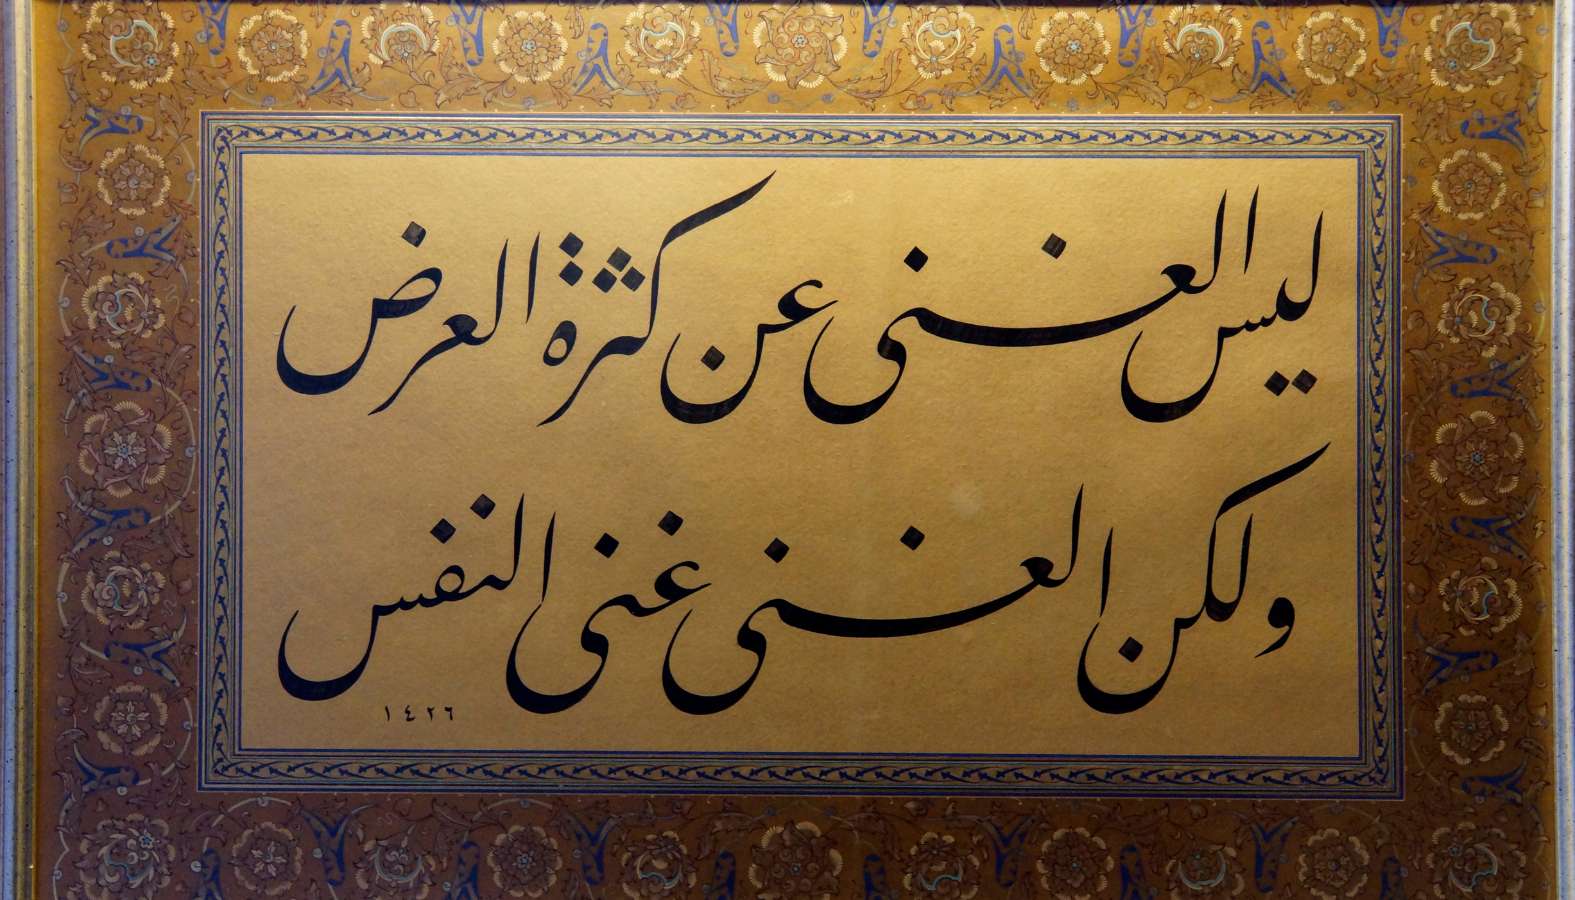 ليس الغنى عن كثرة العرض
ولكن الغنى غنى النفس
١٤٢٦